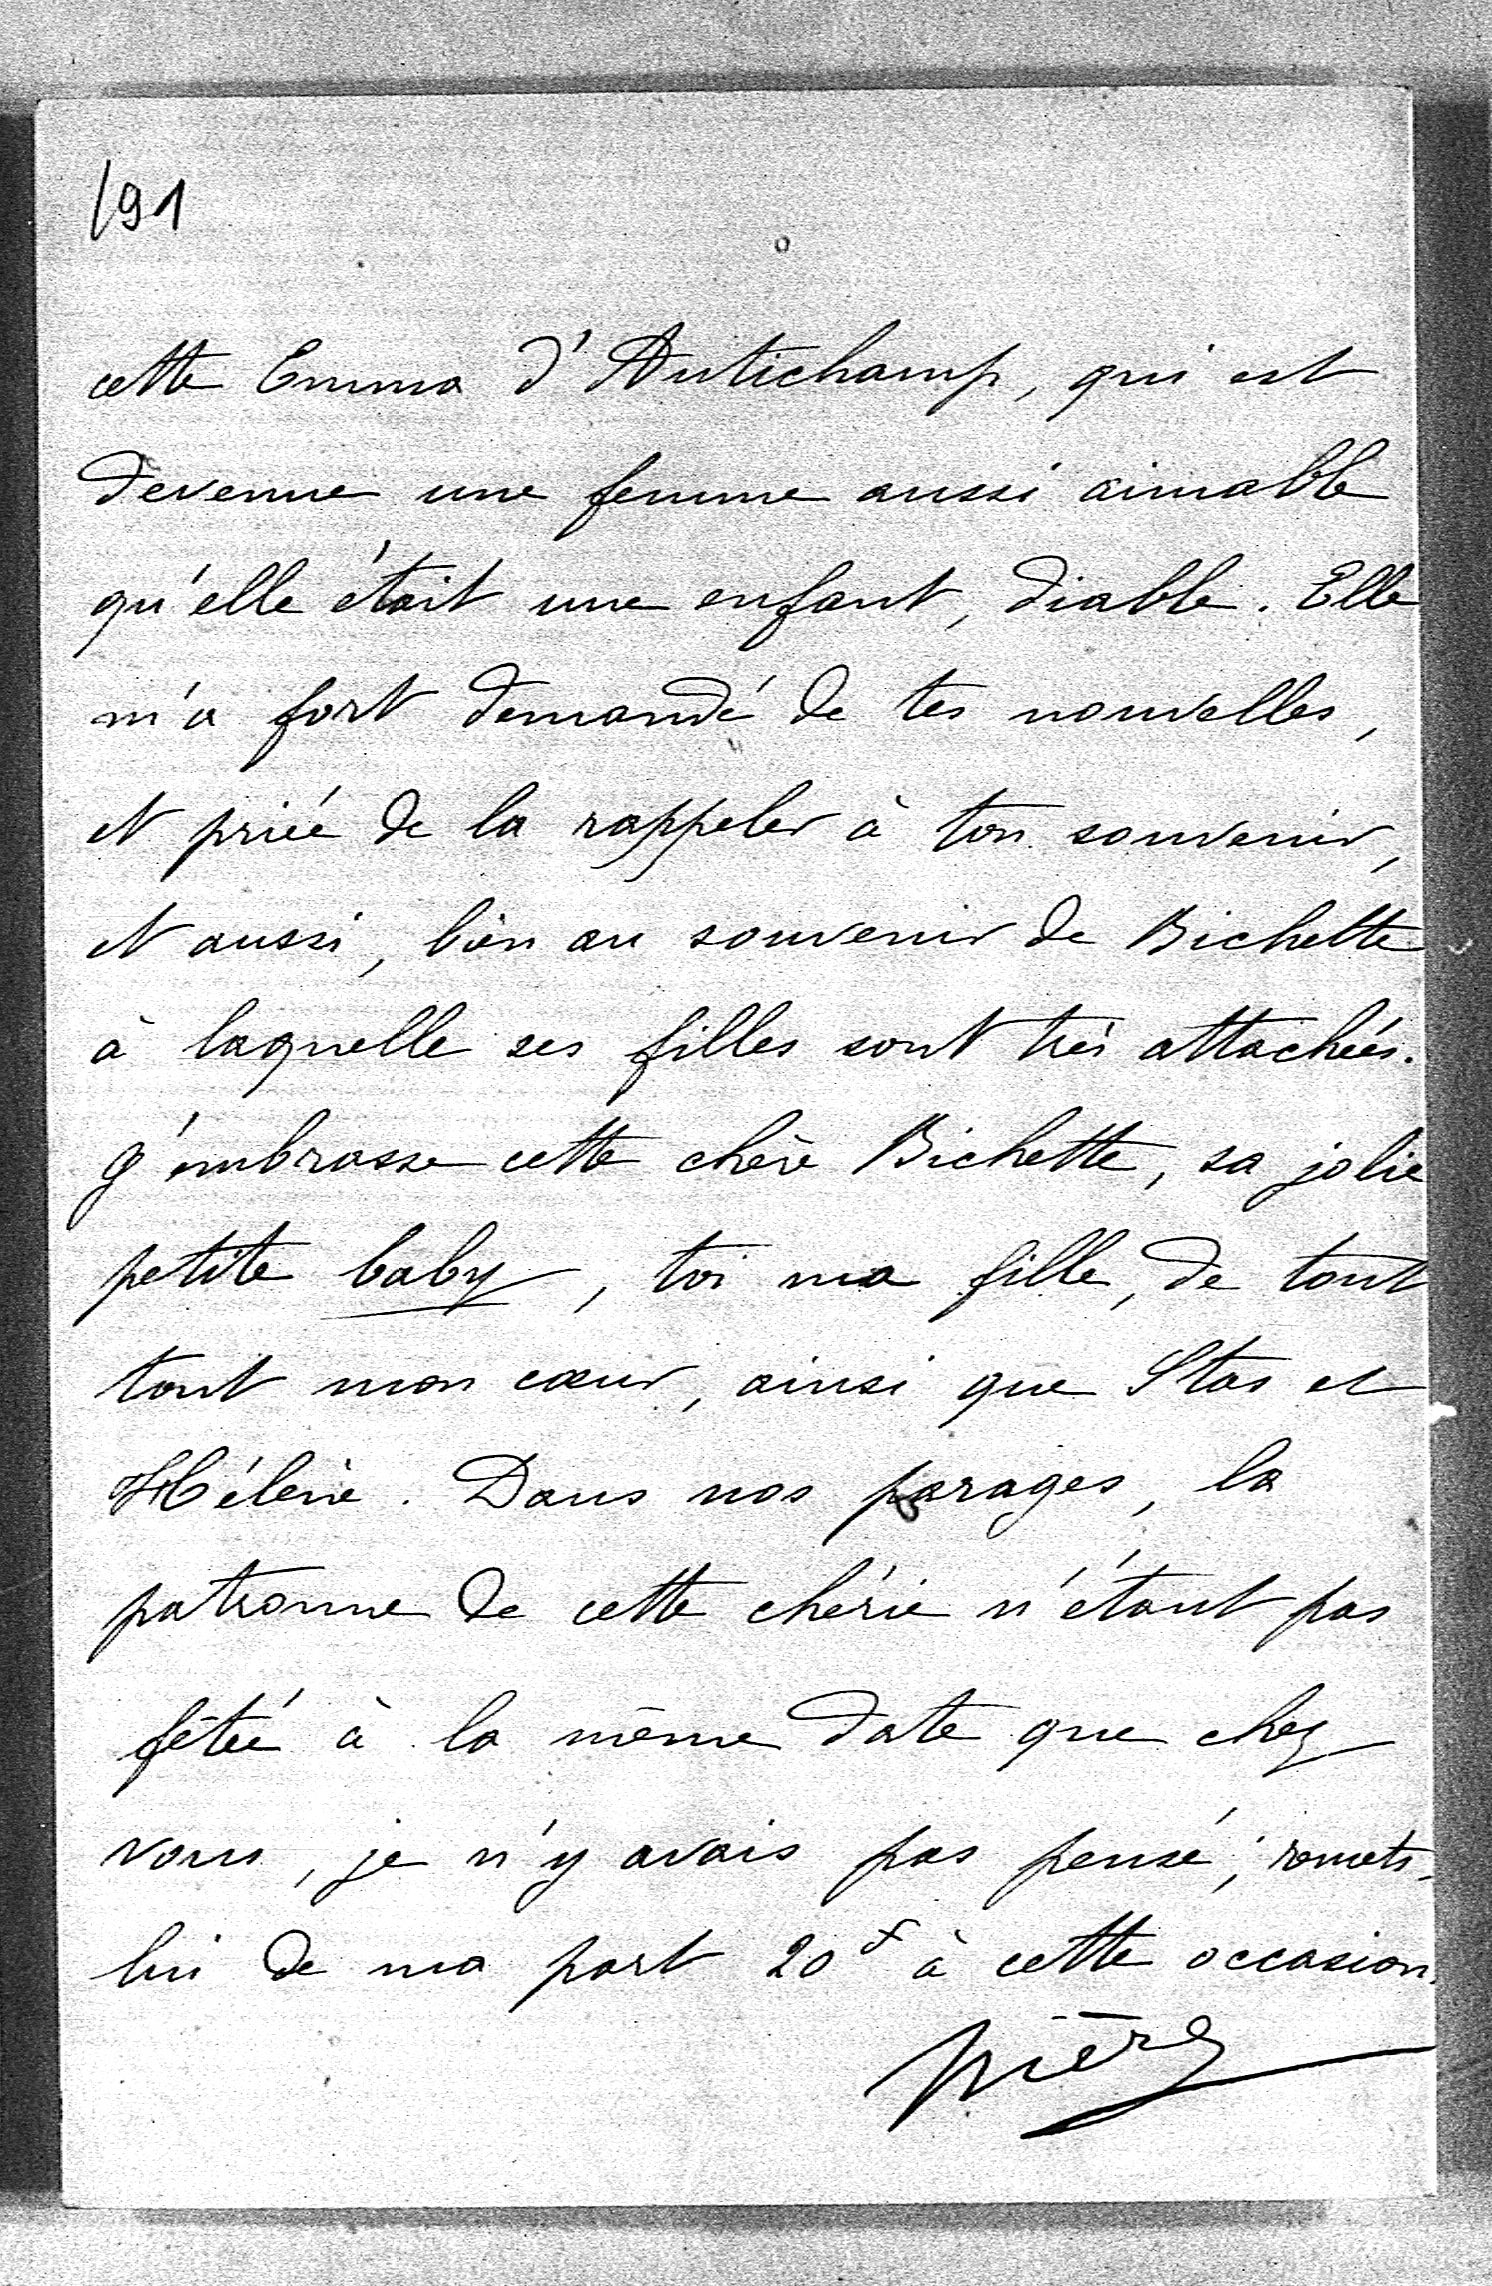 191
cette Emma d'Autichamp, qui est
devenue une femme aussi aimable
qu'elle était une enfant, diable. Elle
m'a fort demandé de tes nouvelles,
et priée de la rappeler à ton souvenir,
et aussi, bien au souvenir de Bichette
à laquelle ses filles sont très attachées.
J'embrasse cette chère Bichette, sa jolie
petite baby, toi ma fille, de tout
tout mon cœur, ainsi que Stas et
Hélène. Dans nos parages, la
patronne de cette chérie n'étant pas
fêtée à la même date que chez
vous, je n'y avais pas pensé; remets-
lui de ma part 20f à cette occasion.
Mère